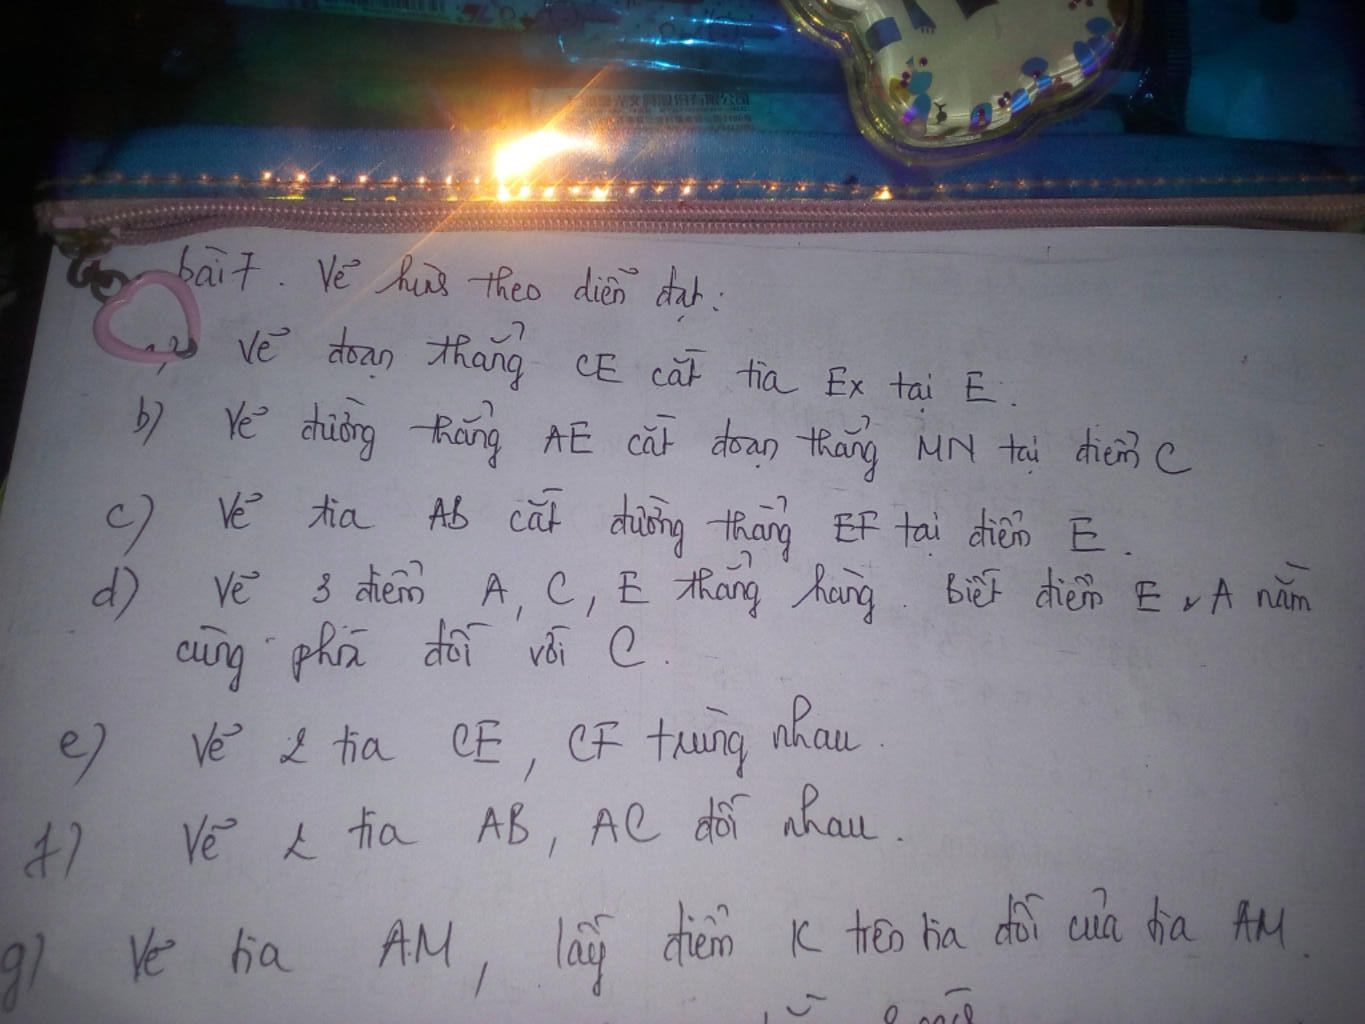 文具股份有限公司
bài 7. Vẽ hình theo diễn đạt:
Vẽ đoạn thẳng CE cắt tia Ex tại E.
b) Vẽ đường thẳng AE cắt đoạn thẳng MN tại điểm C
c) Vẽ tia AB cắt đường thẳng EF tại điểm E.
d) Vẽ 3 điểm A, C, E thẳng hàng. Biết điểm E, A nằm
cùng phía đối với C.
e) Vẽ 2 tia CE, CF trùng nhau.
f) Vẽ 2 tia AB, AC đối nhau.
g) Vẽ tia AM, lấy điểm K trên tia đối của tia AM.